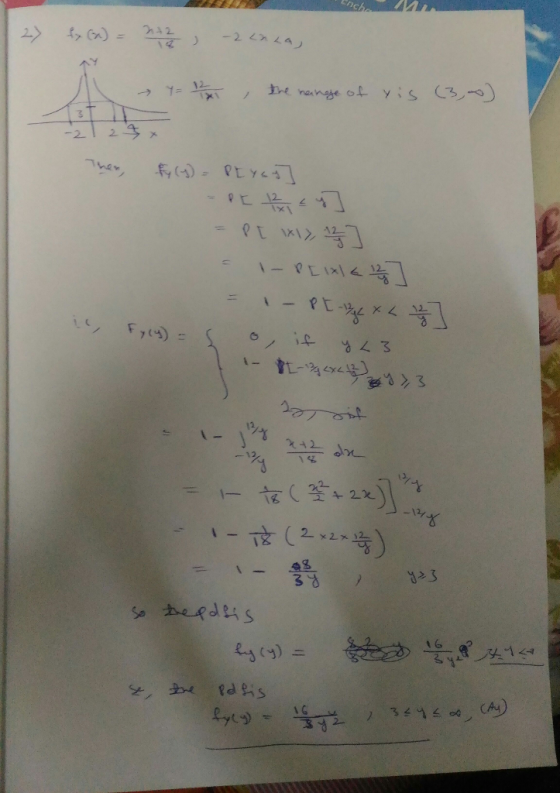 2) fx(x) = x+2/18 , -2 < x < 4,
Y
→ Y = 12/|x| , the range of Y is (3, ∞)
3
-2 2 4 x
Then, Fy(y) = P[Y ≤ y]
= P[ 12/|x| ≤ y ]
= P[ |x| ≥ 12/y ]
= 1 - P[ |x| ≤ 12/y ]
= 1 - P[ -12/y < x < 12/y ]
ie, Fy(y) = { 0, if y < 3
1 - P[ -12/y < x < 12/y ], y ≥ 3
= 1 - ∫_{-12/y}^{12/y} x+2/18 dx
= 1 - 1/18 ( x²/2 + 2x ) ]_{-12/y}^{12/y}
= 1 - 1/18 ( 2 × 2 × 12/y )
= 1 - 8/3y , y ≥ 3
so the pdf is
fy(y) = 16/3y²
so, the pdf is
fy(y) = 16/3y² , 3 ≤ y ≤ ∞, (Ans)